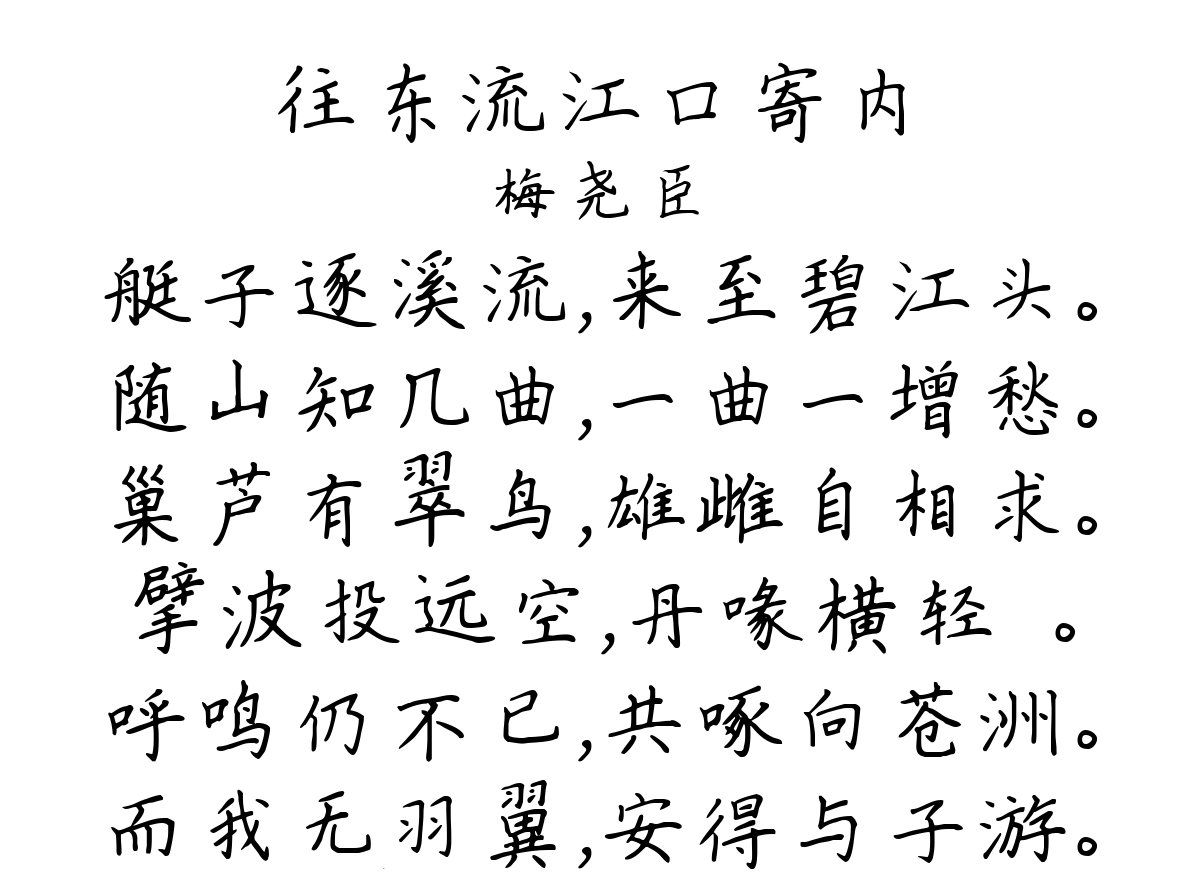 往东流江口寄内
梅尧臣
艇子逐溪流,来至碧江头。
随山知几曲,一曲一增愁。
巢芦有翠鸟,雄雌自相求。
擘波投远空,丹喙横轻 。
呼鸣仍不已,共啄向苍洲。
而我无羽翼,安得与子游。